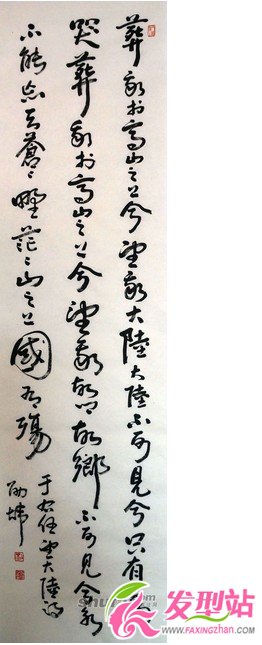 葬我於高山之上兮望我大陸大陸不可見兮只有
哭葬我於高山之上兮望我故鄉故鄉不可見兮永
不能忘天蒼々野茫々山之上國有殤
于右任望大陸詩
发型站
WWW.FAXINGZHAN.COM